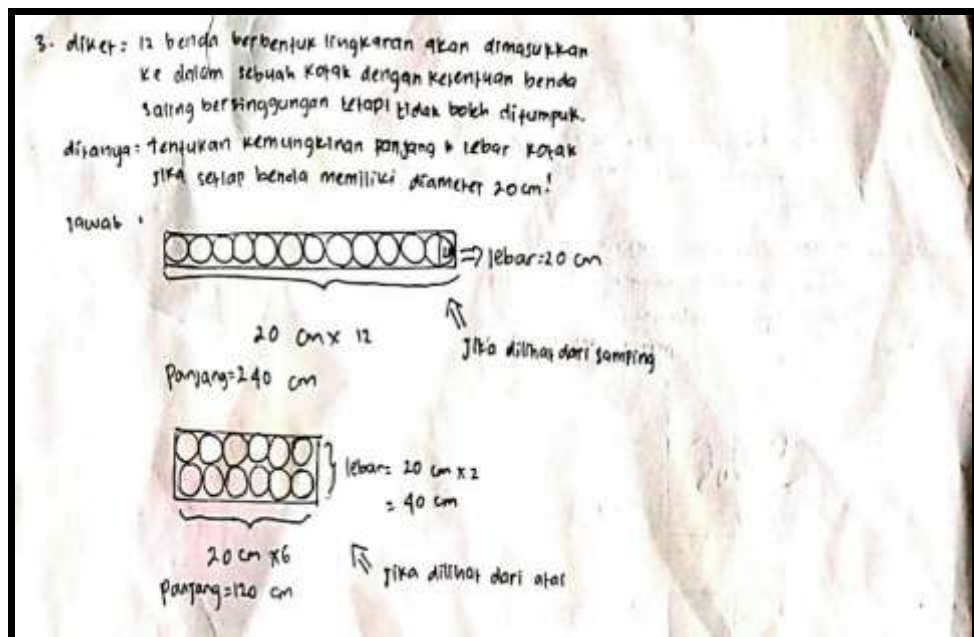 3. diket: 12 benda berbentuk lingkaran akan dimasukkan
ke dalam sebuah kotak dengan ketentuan benda
saling bersinggungan tetapi tidak boleh ditumpuk.
ditanya: tentukan kemungkinan panjang & lebar kotak
jika setiap benda memiliki diameter 20 cm!
Jawab :
⇒ lebar=20 cm
20 cm x 12
jika dilihat dari samping
Panjang=240 cm
lebar= 20 cm x 2
= 40 cm
20 cm x 6
jika dilihat dari atas
Panjang=120 cm